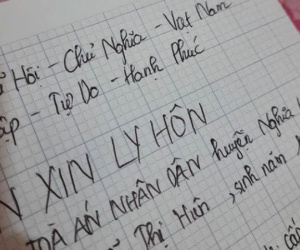 Hội - Chủ Nghĩa - Vạt Nam
lập - Tự Do - Hạnh Phúc
N XIN LY HÔN
TOÀ ÁN NHÂN DÂN huyện Nghĩa
Thị Hiên, sinh năm